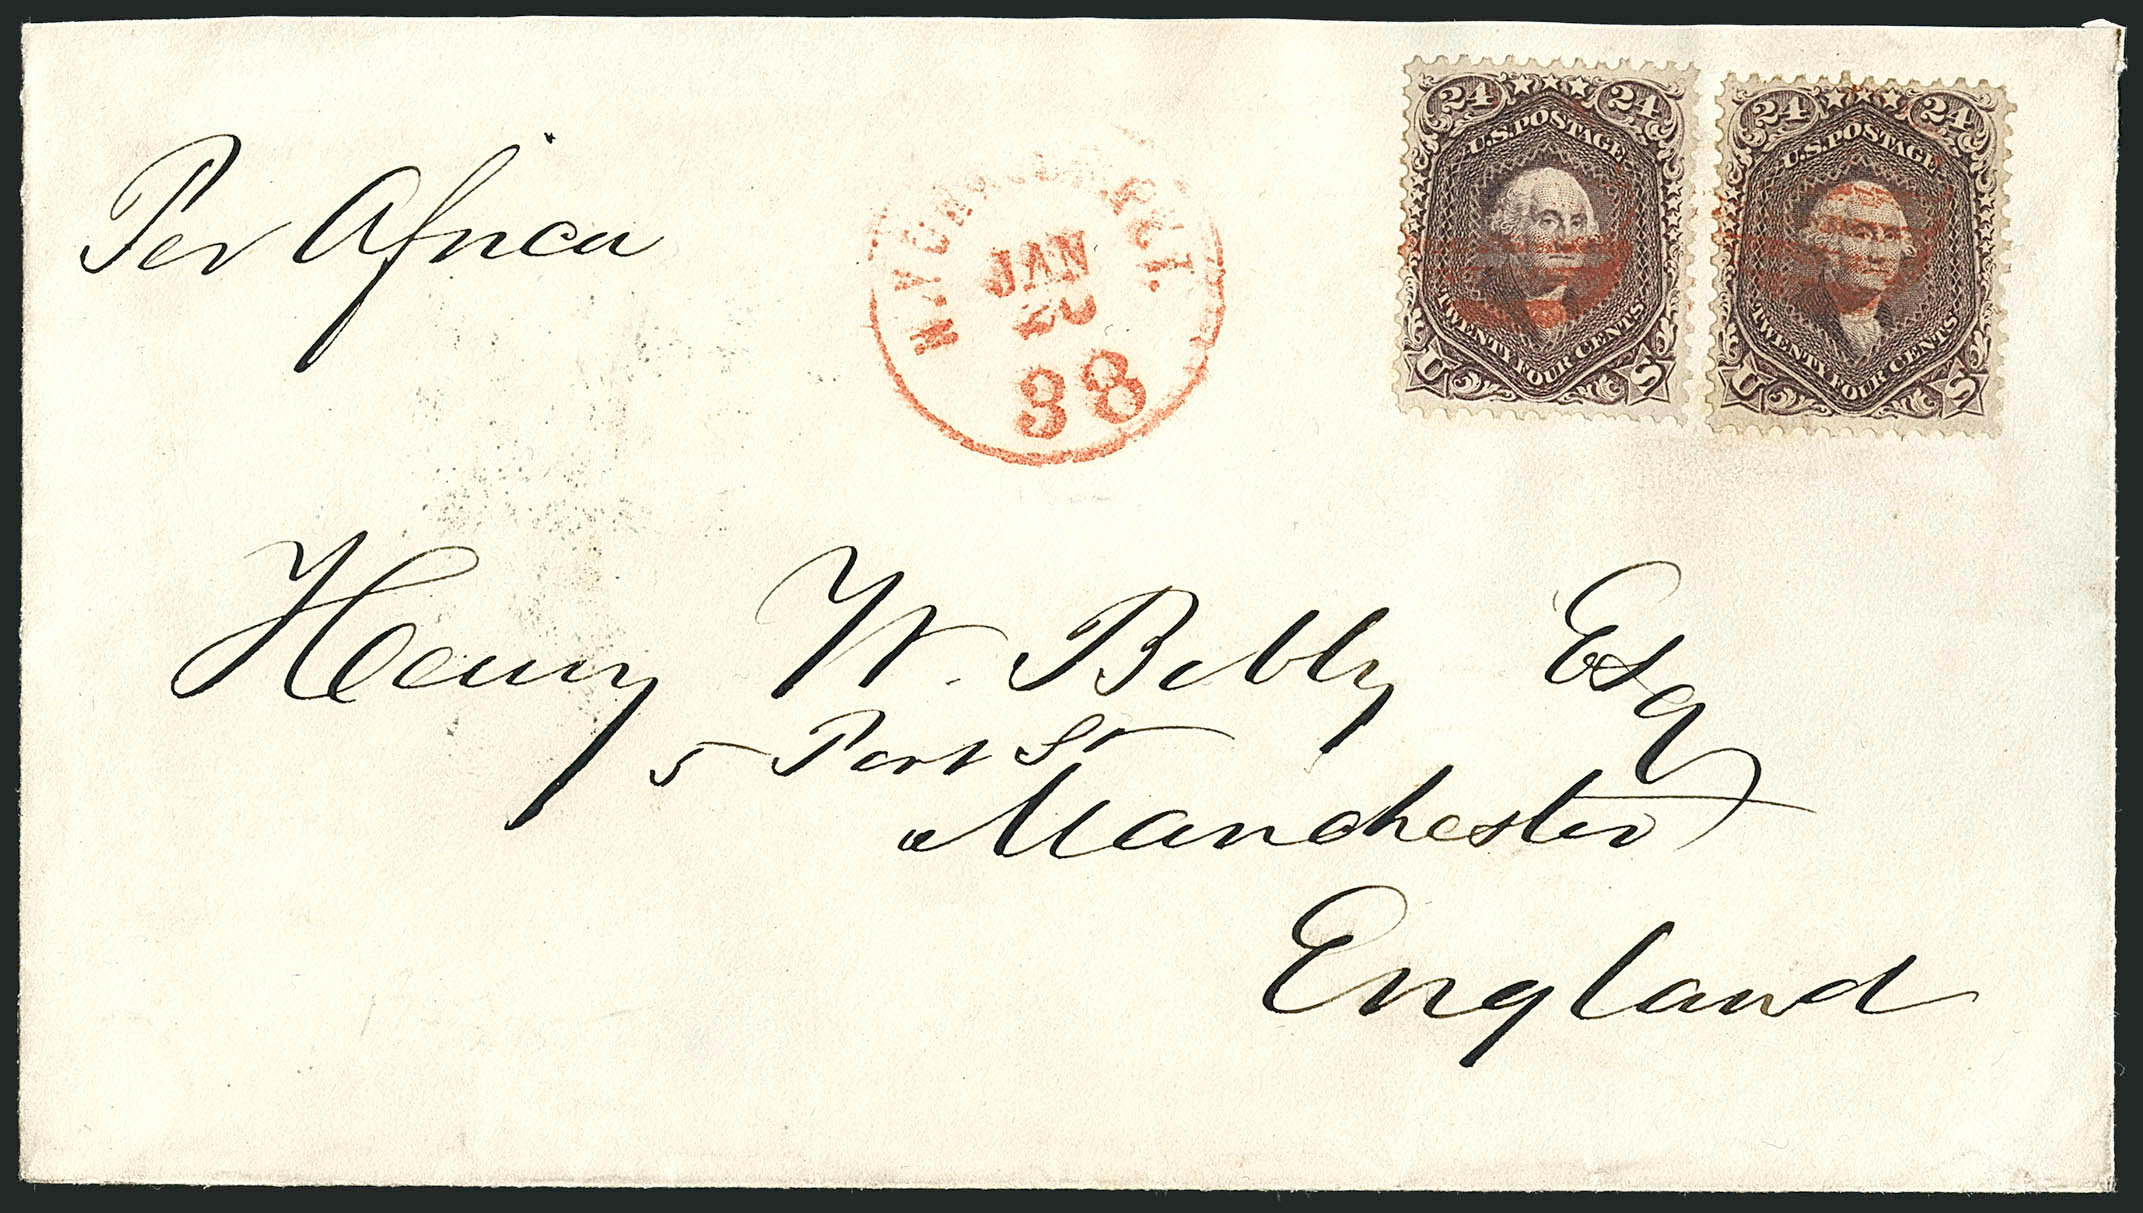 Per Africa
N. YORK AM. PKT.
JAN
38
24 24
U.S.POSTAGE
TWENTY FOUR CENTS
U S
24 24
U.S.POSTAGE
TWENTY FOUR CENTS
U S
Henry W. Bibby Esq
5 Port St
Manchester
England